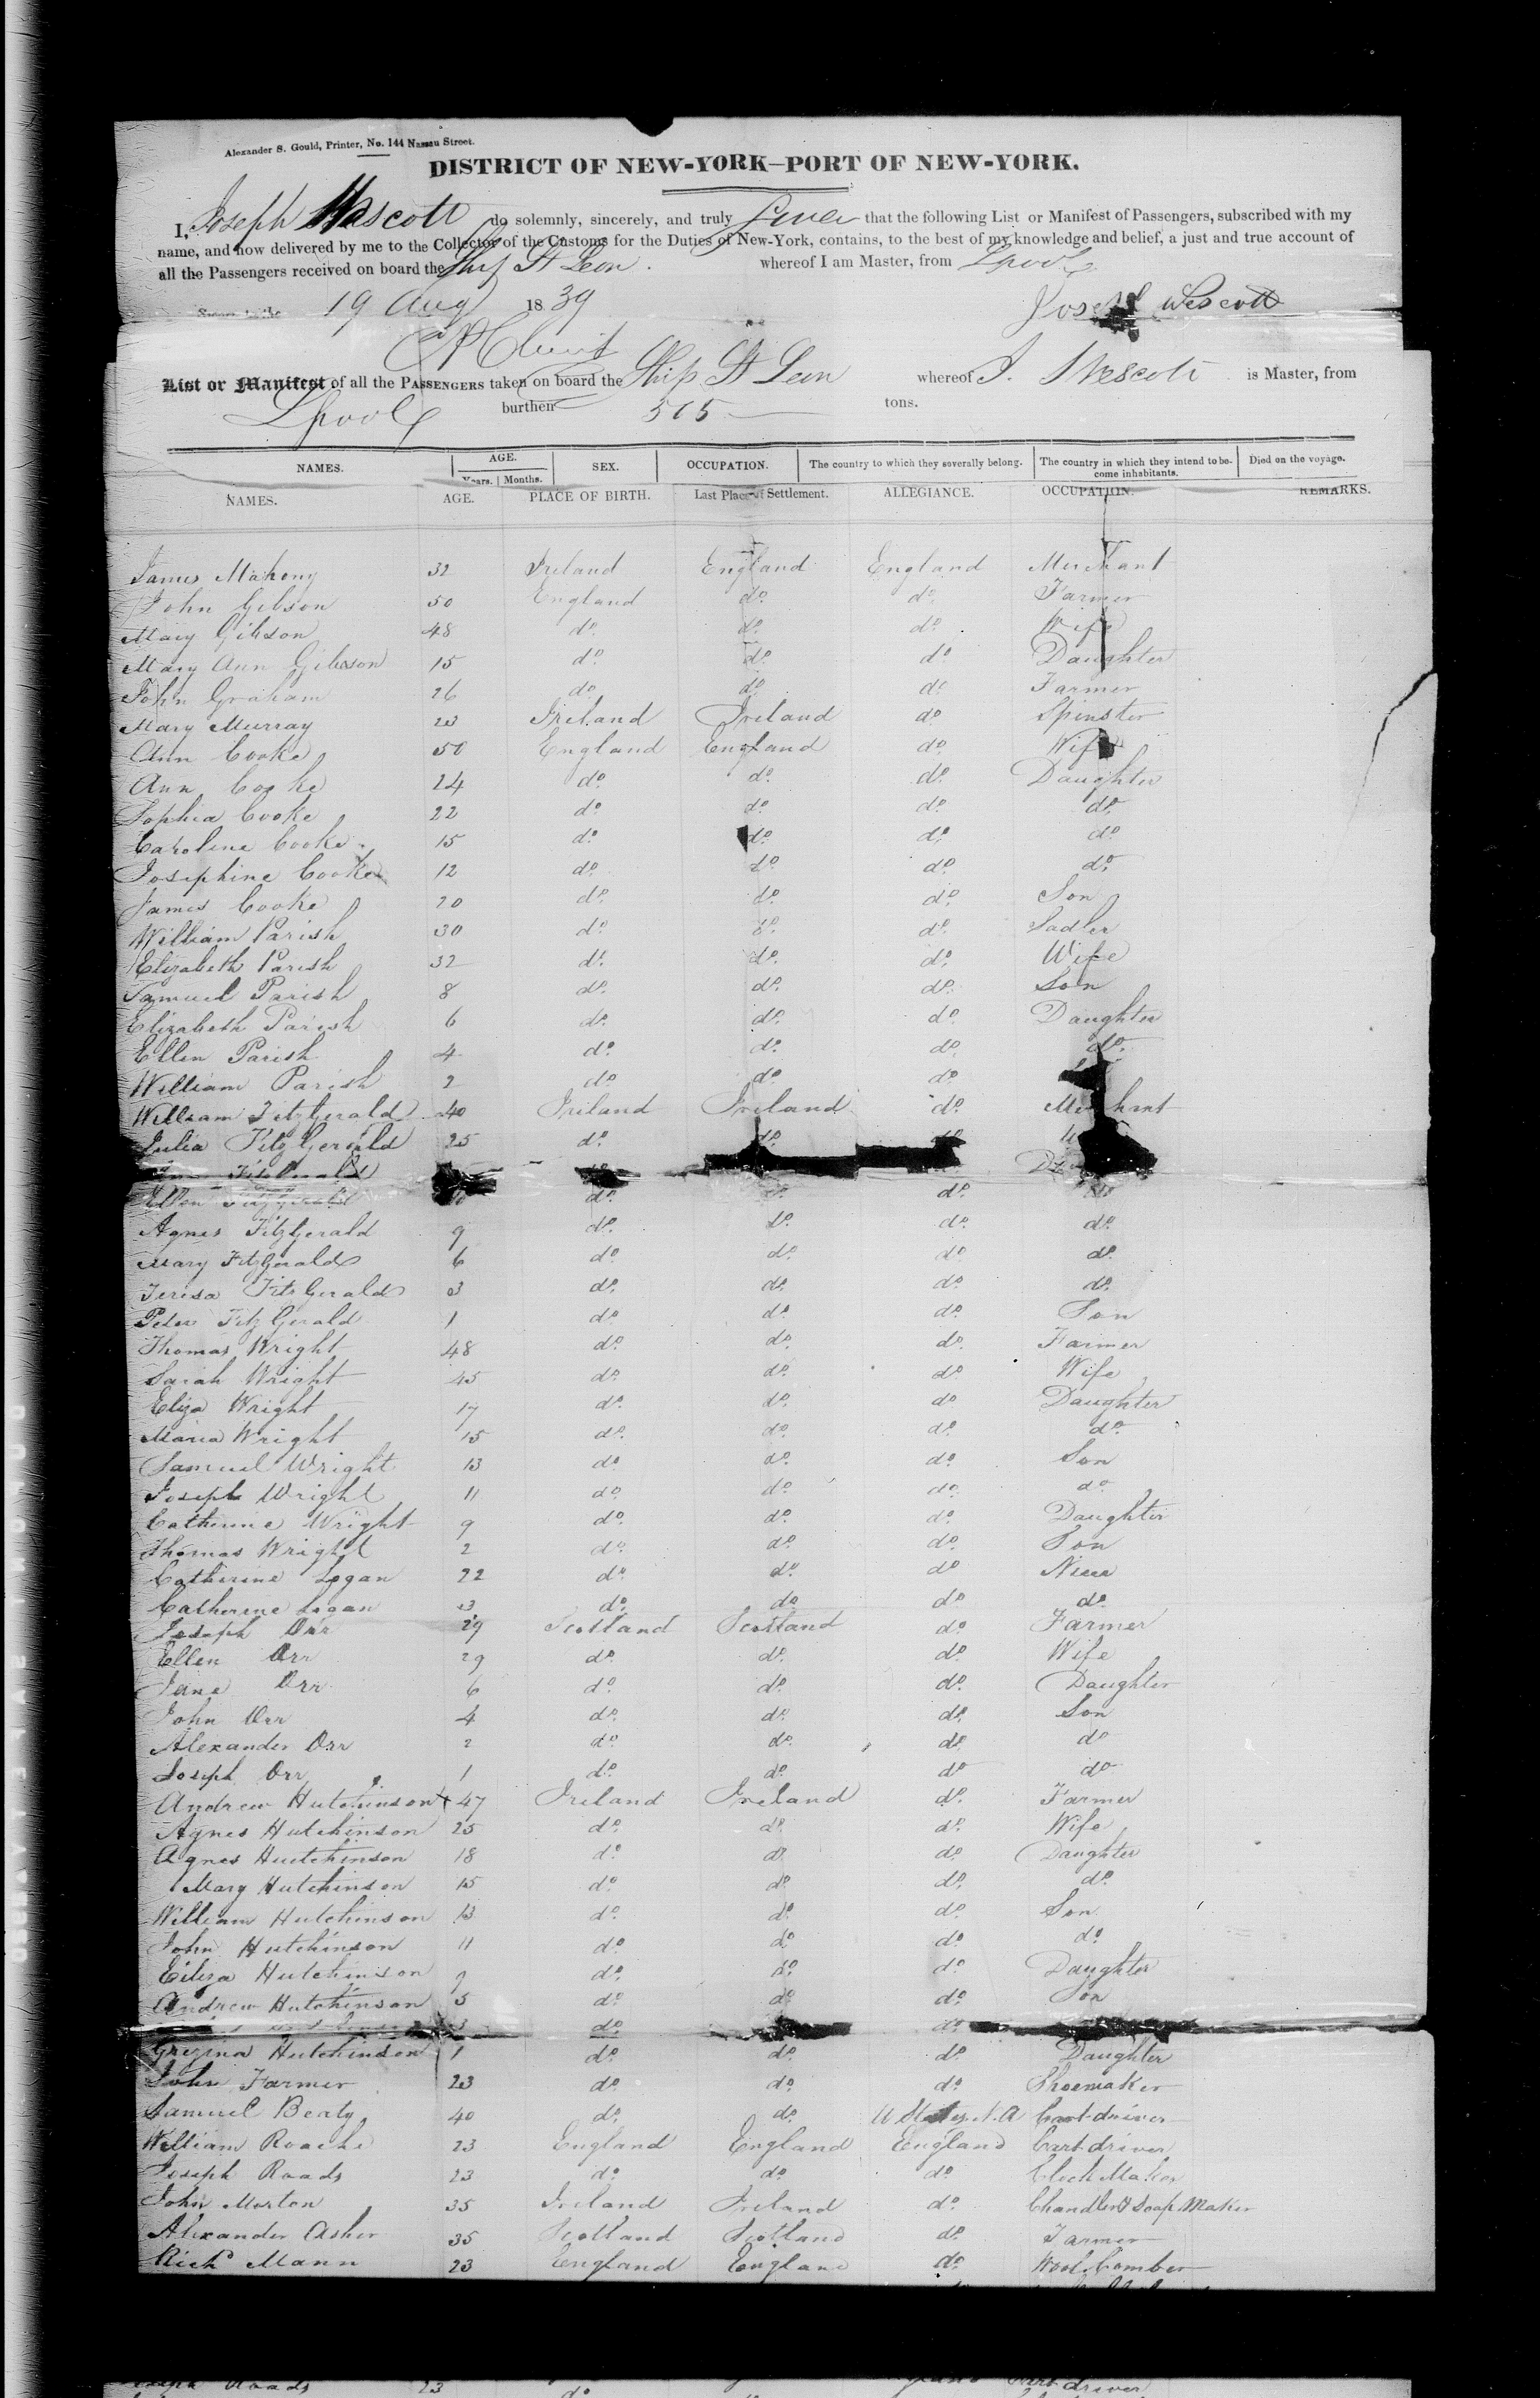 Alexander S. Gould, Printer, No. 144 Nassau Street.
DISTRICT OF NEW-YORK—PORT OF NEW-YORK.
I, Joseph Wascott do solemnly, sincerely, and truly that the following List or Manifest of Passengers, subscribed with my
name, and now delivered by me to the Collector of the Customs for the Duties of New-York, contains, to the best of my knowledge and belief, a just and true account of
all the Passengers received on board the Ship St Leon. whereof I am Master, from Lpool
19 Aug 1839 Joseph Wescott
List or Manifest of all the PASSENGERS taken on board the Ship St Leon whereof J. Wescott is Master, from
Lpool burthen 515 tons.
NAMES. AGE. Years. Months. SEX. OCCUPATION. The country to which they severally belong. The country in which they intend to become inhabitants. Died on the voyage.
NAMES. AGE. PLACE OF BIRTH. Last Place of Settlement. ALLEGIANCE. OCCUPATION. REMARKS.
James Mahony 32 Ireland England England Merchant
John Gibson 50 England do. do. Farmer
Mary Gibson 48 do. do. do. Wife
Mary Ann Gibson 15 do. do. do. Daughter
John Graham 26 do. do. do. Farmer
Mary Murray 23 Ireland Ireland do. Spinster
Ann Cooke 50 England England do. Wife
Ann Cooke 24 do. do. do. Daughter
Sophia Cooke 22 do. do. do. do.
Caroline Cooke 15 do. do. do. do
Josephine Cooke 12 do. do. do. do.
James Cooke 20 do. do. do. Son
William Parish 30 do. do. do. Sadler
Elizabeth Parish 32 do. do. do. Wife
Samuel Parish 8 do. do. do. Son
Elizabeth Parish 6 do. do. do. Daughter
Ellen Parish 4 do. do. do. do.
William Parish 2 do. do. do.
William FitzGerald 40 Ireland Ireland do. Merchant
Julia FitzGerald 25 do. do.
FitzGerald
Ellen FitzGerald do. do. do. do
Agnes FitzGerald 9 do. do. do. do.
Mary FitzGerald 6 do. do. do. do.
Teresa FitzGerald 3 do. do. do. do.
Peter FitzGerald 1 do. do. do. Son
Thomas Wright 48 do. do. do. Farmer
Sarah Wright 45 do. do. do. Wife
Eliza Wright 17 do. do. do Daughter
Maria Wright 15 do. do. do. do.
Samuel Wright 13 do. do. do. Son
Joseph Wright 11 do. do. do. do
Catherine Wright 9 do. do. do. Daughter
Thomas Wright 2 do. do. do. Son
Catherine Logan 22 do. do. do Niece
Catherine Logan 3 do. do do do.
Joseph Orr 29 Scotland Scotland do. Farmer
Ellen Orr 29 do. do. do. Wife
Jane Orr 6 do. do. do. Daughter
John Orr 4 do. do. do. Son
Alexander Orr 2 do. do. do. do
Joseph Orr 1 do. do. do do
Andrew Hutchinson 47 Ireland Ireland do. Farmer
Agnes Hutchinson 25 do. do. do. Wife
Agnes Hutchinson 18 do. do do. Daughter
Mary Hutchinson 15 do. do. do. do.
William Hutchinson 13 do. do. do. Son
John Hutchinson 11 do. do. do. do.
Eliza Hutchinson 9 do. do. do. Daughter
Andrew Hutchinson 5 do. do. do. Son
3 do. do.
Hutchinson 1 do. do. do. Daughter
John Farmer 23 do. do. do. Shoemaker
Samuel Beaty 40 do. do. U States N.A Cart driver
William Roache 23 England England England Cart driver
Joseph Roads 23 do. do. do. Clock Maker
John Morton 35 Ireland Ireland do. Chandler & Soap Maker
Alexander Asher 35 Scotland Scotland do. Farmer
Richd Mann 23 England England do. Wool Comber
Joseph Roads 23 do. driver